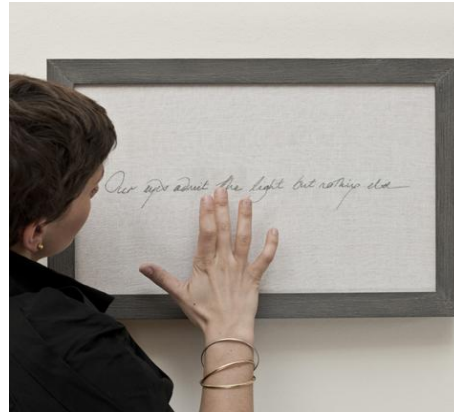 Our eyes admit the light but nothing else